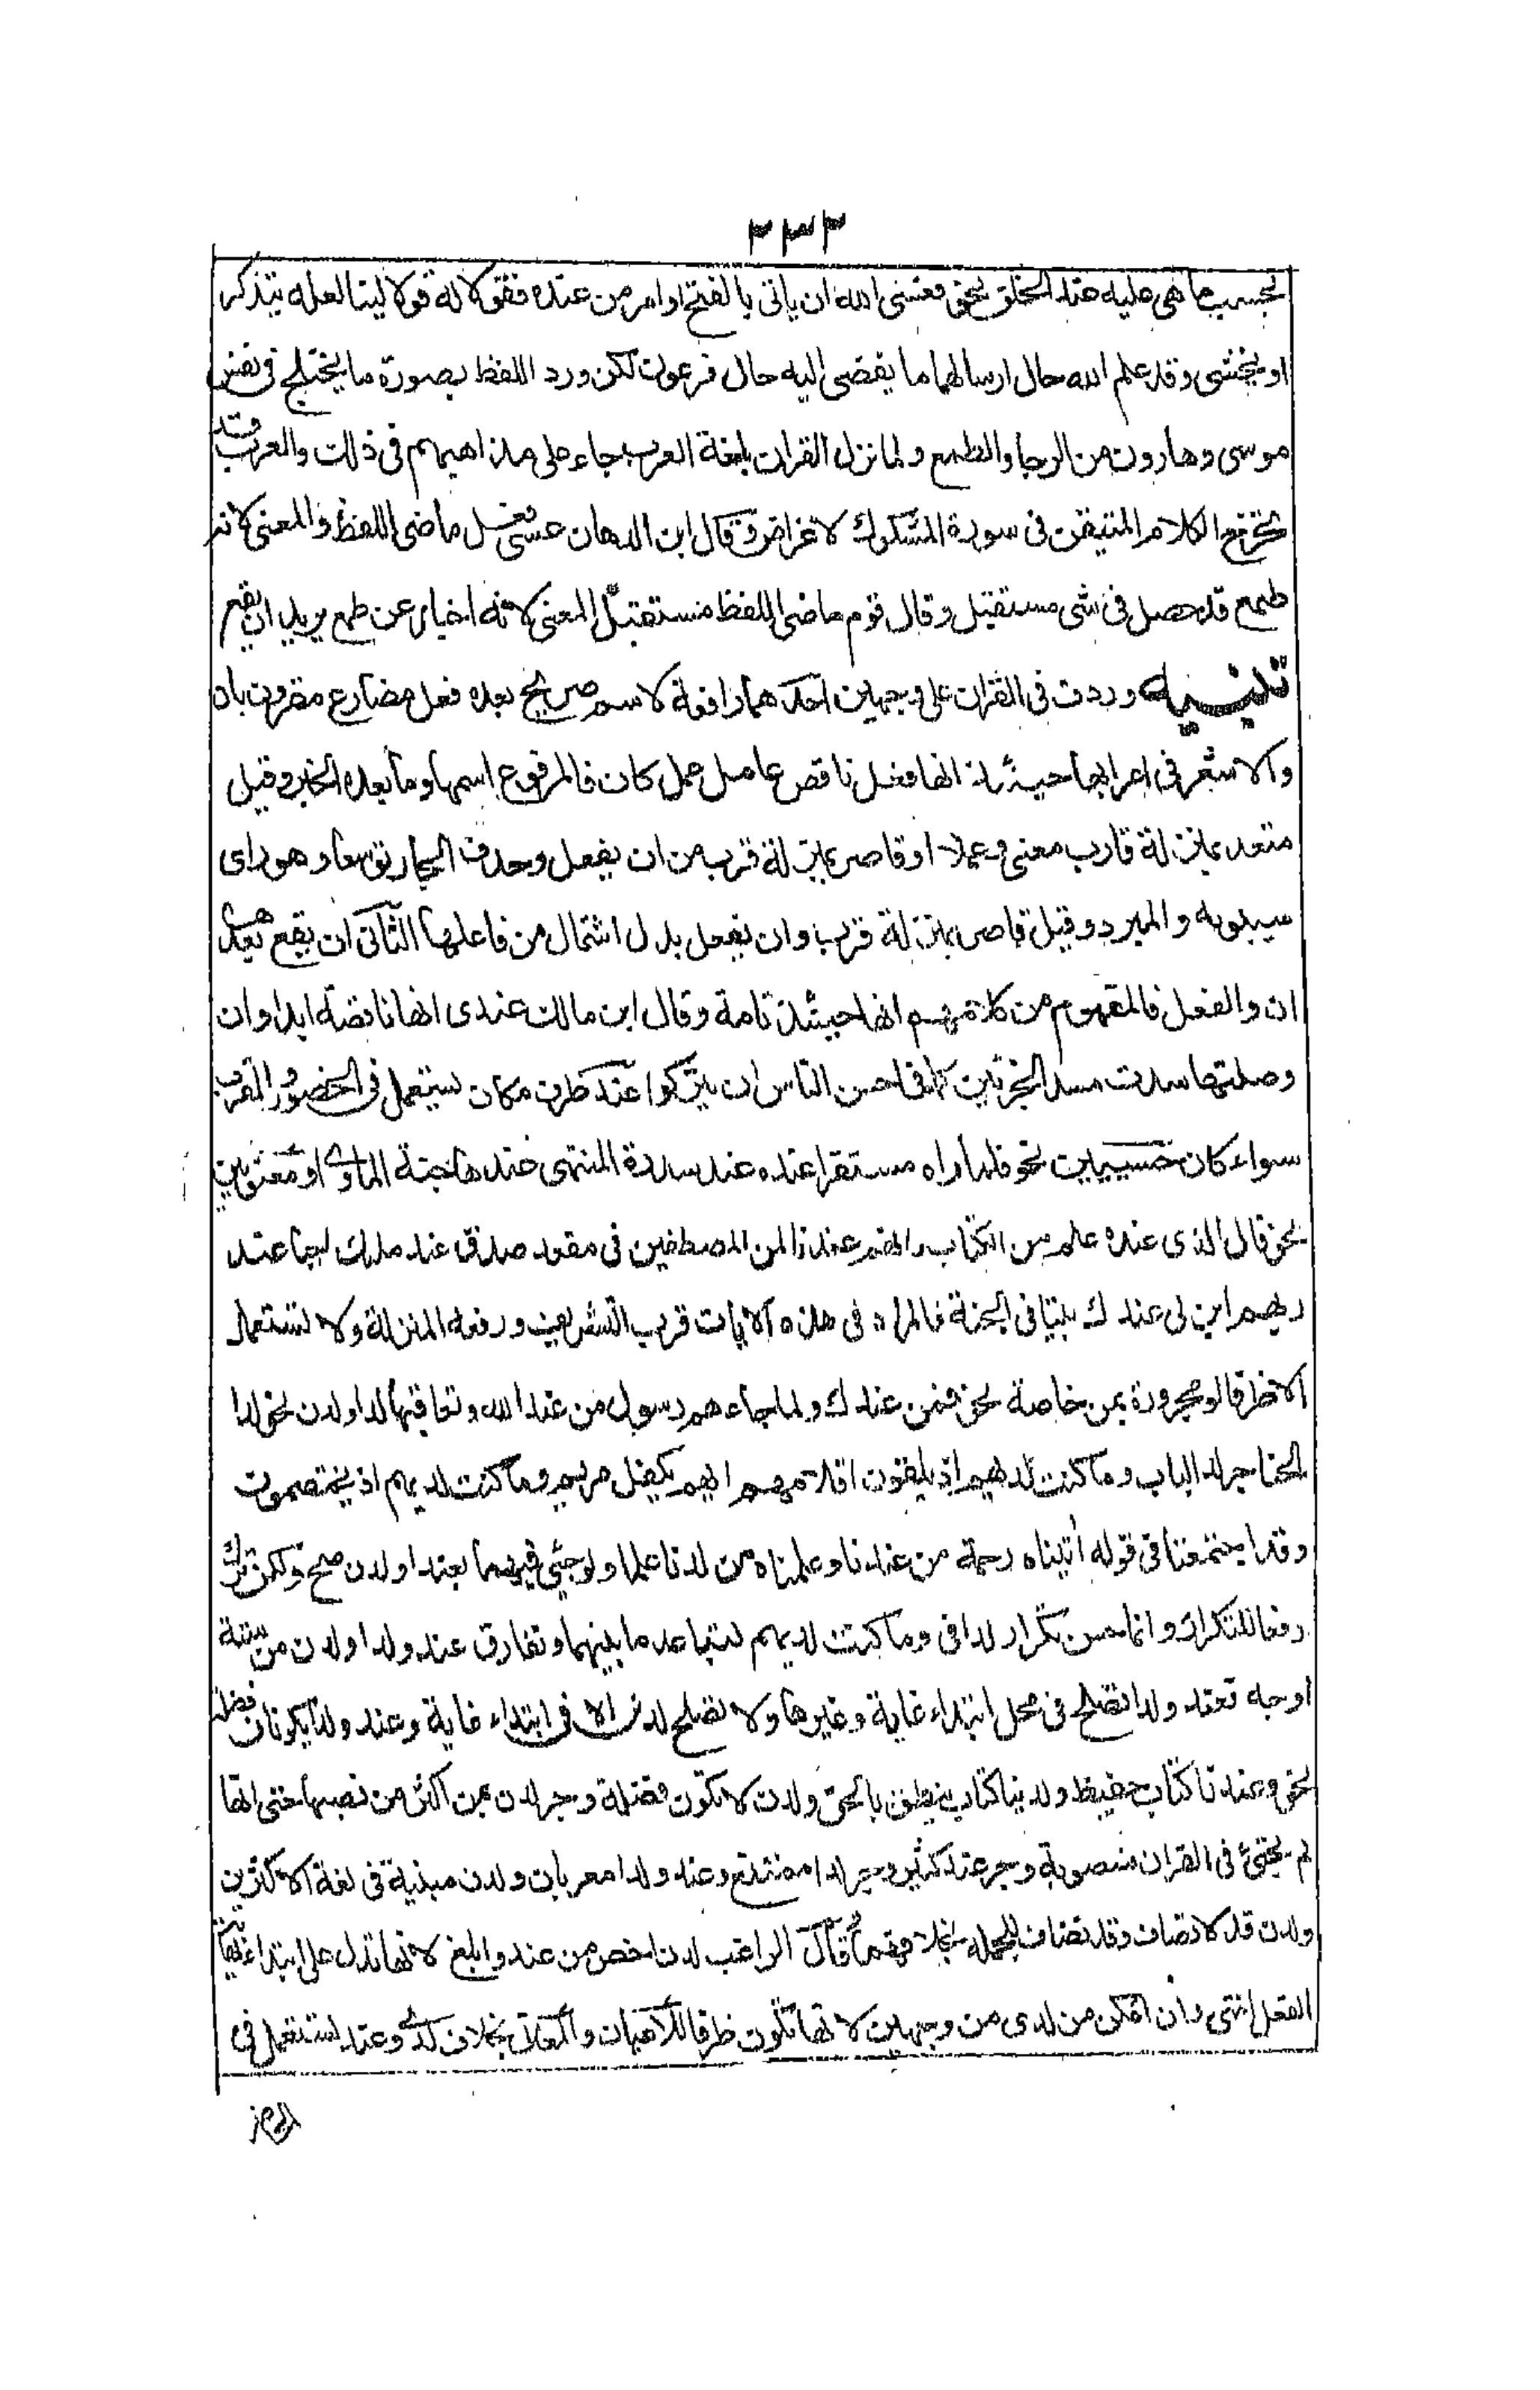 ٣٣٣
بحسب ما هى عليه عند الخلق نحو فعسى الله ان ياتى بالفتح او امر من عنده فقولا له قولا لينا لعله يتذكر
او يخشى وقد علم الله حال ارسالهما ما يفضى اليه حال فرعون لكن ورد اللفظ بصورة ما يختلج فى نفس
موسى وهارون من الرجا والطمع ولما نزل القران بلغة العرب جاء على مذاهبهم فى ذلك والعرب قد
تخرج الكلام المتيقن فى صورة المشكوك لاغراض وقال ابن الدهان عسى فعل ماضى اللفظ والمعنى لانه
طمع قد حصل فى شى مستقبل وقال قوم ماضى اللفظ مستقبل المعنى لانه اخبار عن طمع يريد ان يقع
تنبيه وردت فى القران على وجهين احدهما رافعة لاسم صريح بعده فعل مضارع مقرون بان
والاشهر فى اعرابها حينئذ انها فعل ناقص عامل عمل كان فالمرفوع اسمها وما بعده الخبر وقيل
متعد بمنزلة قارب معنى وعملا او قاصر بمنزلة قرب من ان يفعل وحذف الجار توسعا وهو راى
سيبويه والمبرد وقيل قاصر بمنزلة قرب وان يفعل بدل اشتمال من فاعلها الثانى ان يقع بعدها
ان والفعل فالمفهوم من كلامهم انها حينئذ تامة وقال ابن مالك عندى انها ناقصة ابدا وان
وصلتها سدت مسد الجزئين كما فى احسب الناس ان يتركوا عند ظرف مكان تستعمل فى الحضور والقرب
سواء كان حسيين نحو فلما راه مستقرا عنده عند سدرة المنتهى عندها جنة الماوى او معنويين
نحو قال الذى عنده علم من الكتاب وانهم عندنا لمن المصطفين فى مقعد صدق عند مليك احياء عند
ربهم ابن لى عندك بيتا فى الجنة فالمراد فى هذه الايات قرب التشريف ورفعة المنزلة ولا تستعمل
الا ظرفا او مجرورة بمن خاصة نحو فمن عندك ولما جاءهم رسول من عند الله وتعاقبها لدا ولدن نحو لدا
الحناجر لدا الباب وما كنت لديهم اذ يلقون اقلامهم ايهم يكفل مريم وما كنت لديهم اذ يختصمون
وقد اجتمعتا فى قوله اتيناه رحمة من عندنا وعلمناه من لدنا علما ولو جئ فيهما بعند او لدن صح ولكن ترك
دفعا للتكرار وانما حسن تكرار لدا فى وما كنت لديهم لتباعد ما بينهما وتفارق عند ولدا ولدن من ستة
اوجه فعند ولدا تصلح فى محل ابتداء غاية وغيرها ولا تصلح لدن الا فى ابتداء غاية وعند ولدا يكونان فضلة
نحو وعندنا كتاب حفيظ ولدينا كتاب ينطق بالحق ولدن لا تكون فضلة وجر لدن بمن اكثر من نصبها حتى انها
لم تجئ فى القران منصوبة وجر عند كثير وجر لدا ممتنع وعند ولدا معربان ولدن مبنية فى لغة الاكثرين
ولدن قد لا تضاف وقد تضاف للجملة بخلافهما قال الراغب لدن اخص من عند وابلغ لانها تدل على ابتداء نهاية
الفعل انتهى وان امكن من لدى من وجهين لانها تكون ظرفا للاعيان والمعانى بخلاف لدى وعند تستعمل فى